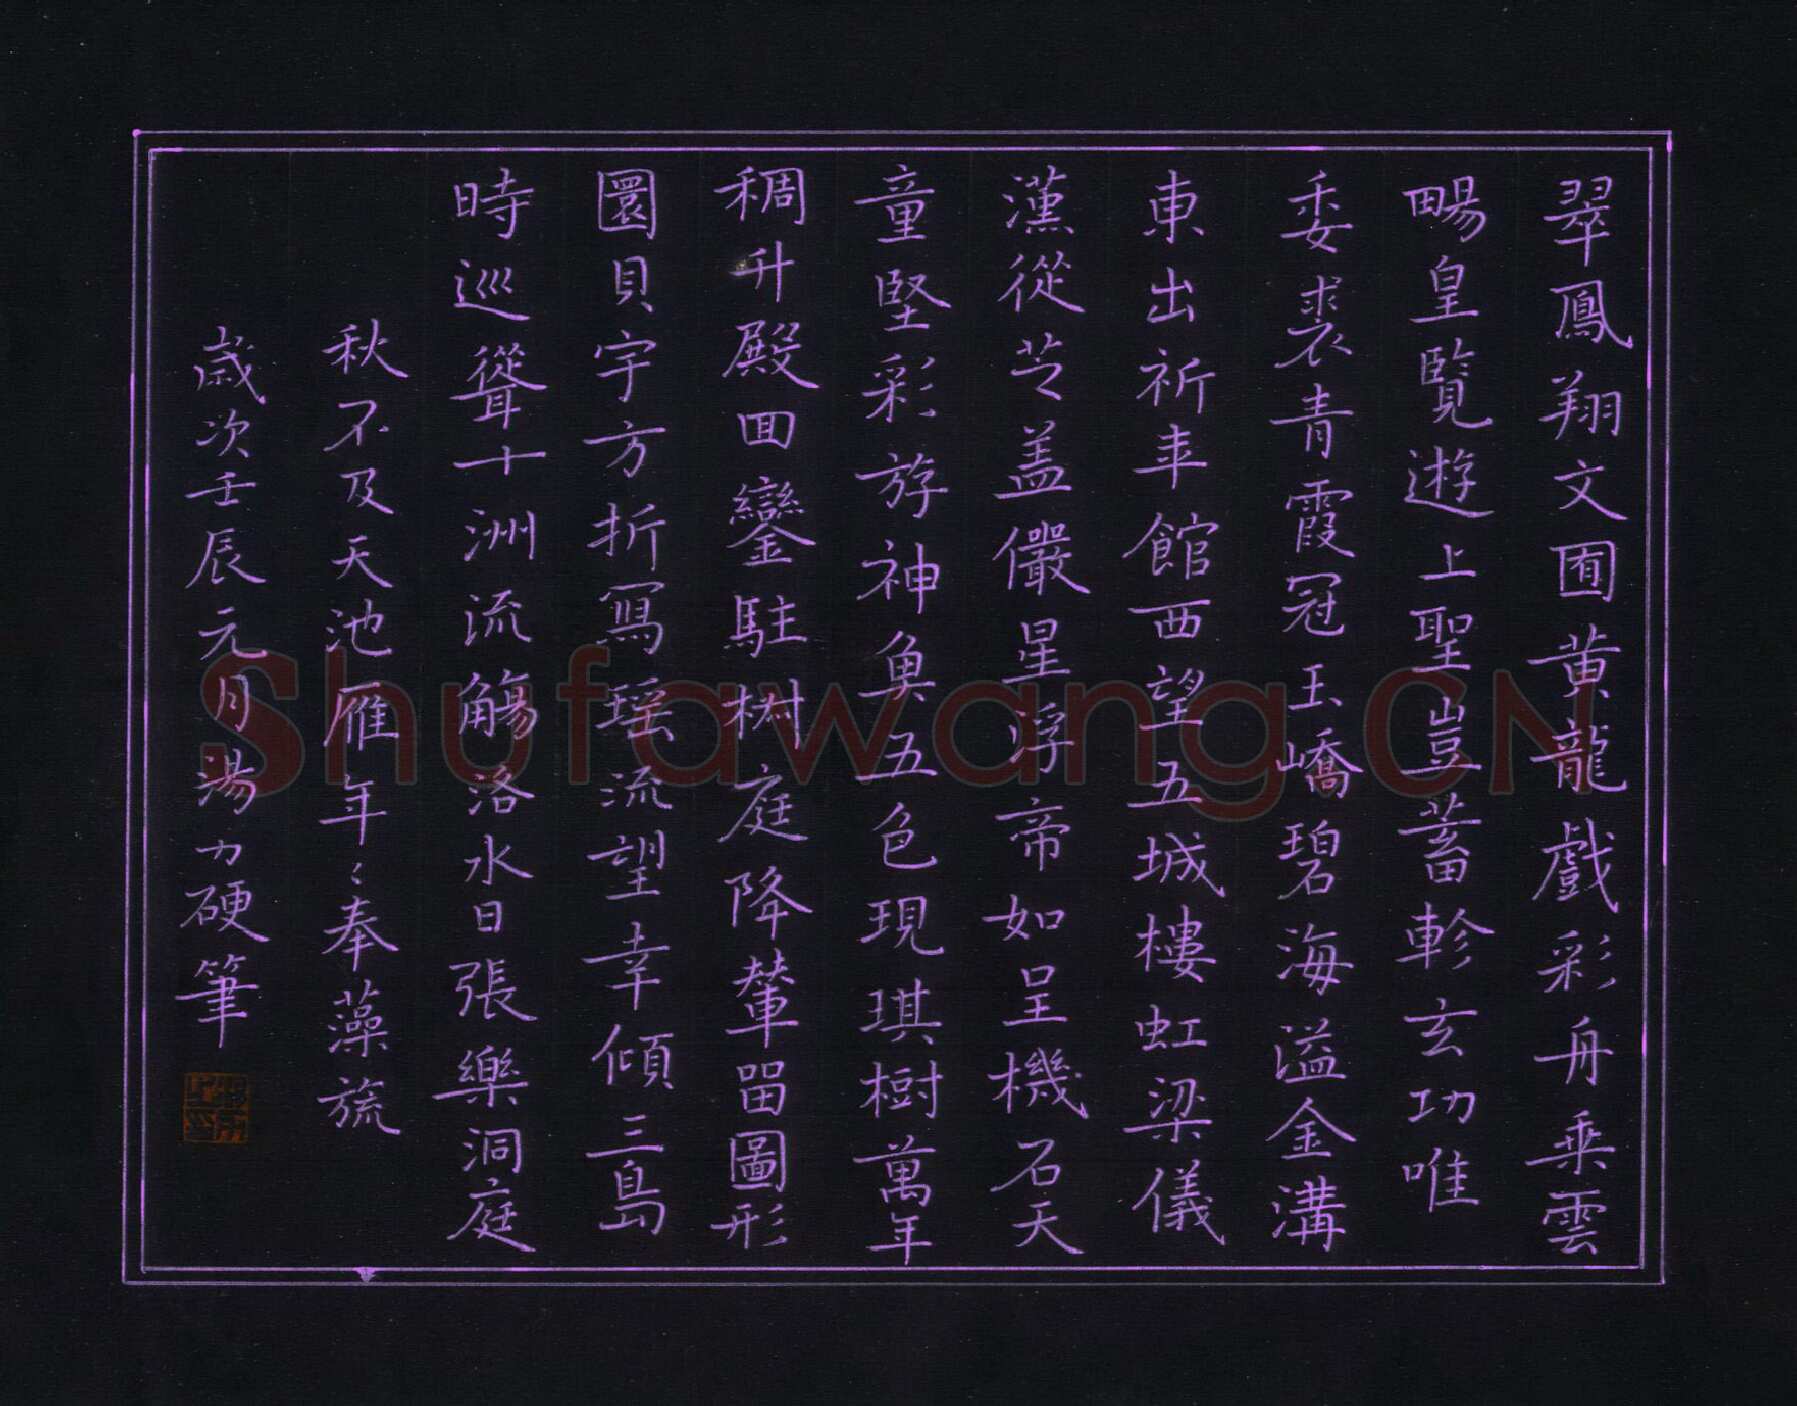 翠鳳翔文囿黄龍戲彩舟乗雲
暢皇覽遊上聖豈蓄軫玄功唯
委裘青霞冠玉嶠碧海溢金溝
東出祈年館西望五城樓虹梁儀
漢從芝盖儼星浮帝如呈機石天
童堅彩斿神魚五色現琪樹萬年
稠升殿回鑾駐樹庭降輦留圖形
圜貝宇方折寫瑶流望幸傾三島
時巡聳十洲流觴洛水日張樂洞庭
秋不及天池雁年〻奉藻旒
歲次壬辰元月湯力硬筆
Shufawang.CN